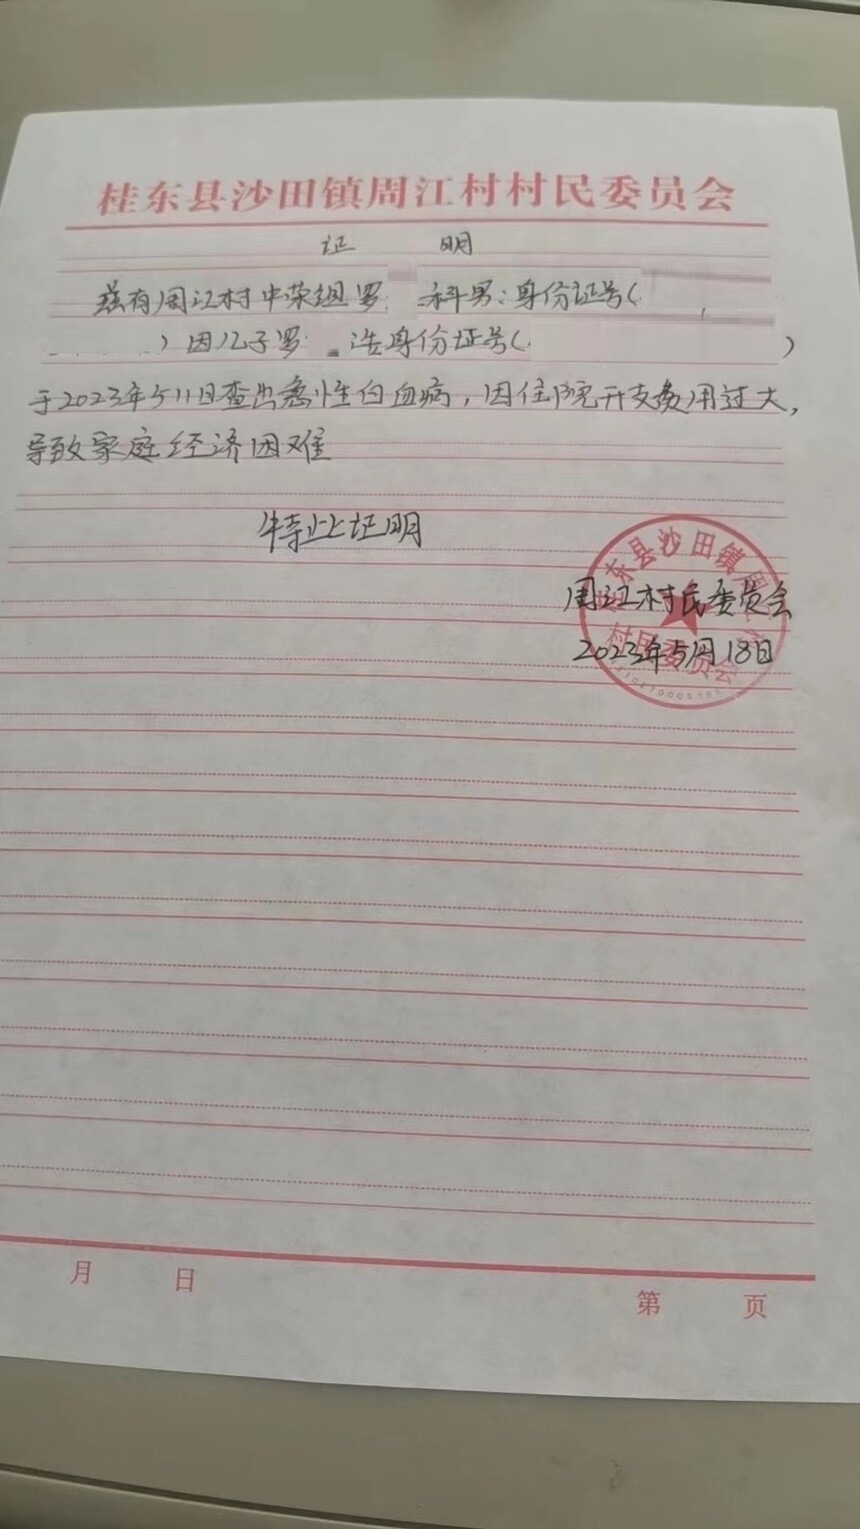 桂东县沙田镇周江村村民委员会
证 明
兹有周江村中荣组罗 科男：身份证号（
）因儿子罗 浩身份证号（ ）
于2023年5月11日查出急性白血病，因住院开支费用过大，
导致家庭经济困难
特此证明
桂东县沙田镇周
周江村民委员会
2023年5月18日
村民委员会
月 日
第 页